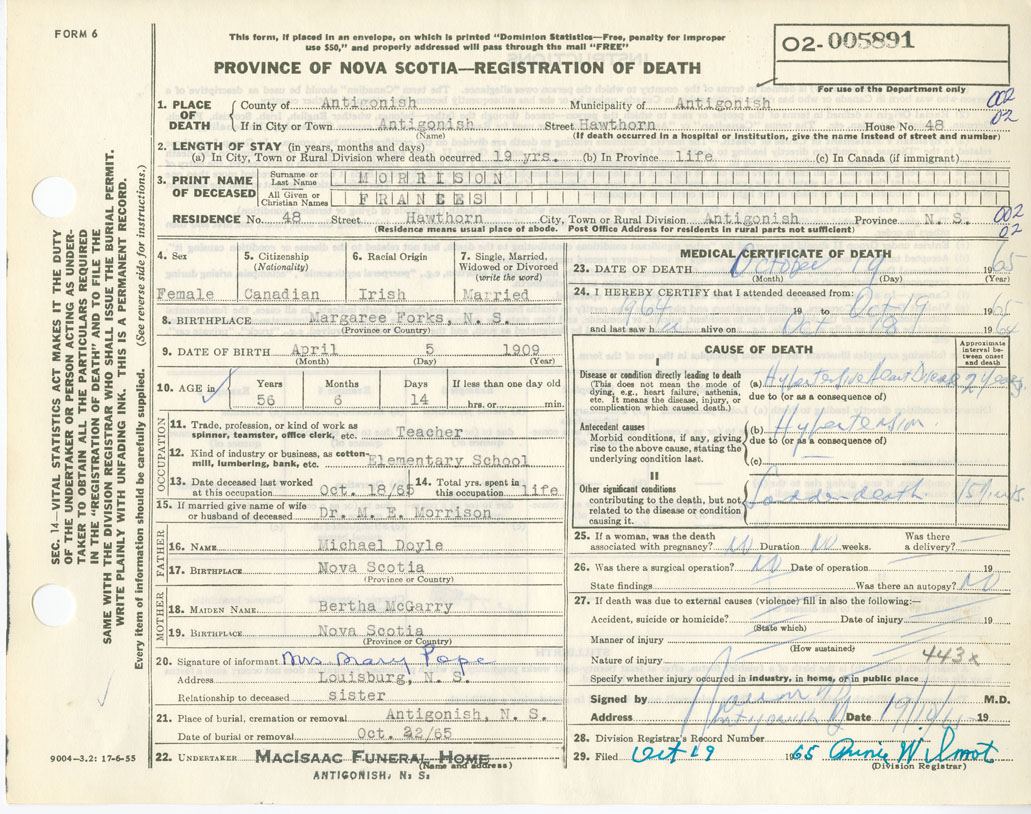 FORM 6
This form, if placed in an envelope, on which is printed "Dominion Statistics—Free, penalty for improper
use $50," and properly addressed will pass through the mail "FREE"
PROVINCE OF NOVA SCOTIA—REGISTRATION OF DEATH
02-005891
For use of the Department only
1. PLACE OF DEATH
County of Antigonish Municipality of Antigonish 002
If in City or Town Antigonish Street Hawthorn House No. 48 02
(Name) (If death occurred in a hospital or institution, give the name instead of street and number)
2. LENGTH OF STAY (in years, months and days)
(a) In City, Town or Rural Division where death occurred 19 yrs. (b) In Province life (c) In Canada (if immigrant)
3. PRINT NAME OF DECEASED
Surname or Last Name MORRISON
All Given or Christian Names FRANCES
RESIDENCE No. 48 Street Hawthorn City, Town or Rural Division Antigonish Province N. S. 002
(Residence means usual place of abode. Post Office Address for residents in rural parts not sufficient) 02
4. Sex
Female
5. Citizenship
(Nationality)
Canadian
6. Racial Origin
Irish
7. Single, Married,
Widowed or Divorced
(write the word)
Married
8. BIRTHPLACE Margaree Forks, N. S.
(Province or Country)
9. DATE OF BIRTH April 5 1909
(Month) (Day) (Year)
10. AGE in
Years Months Days If less than one day old
56 6 14 hrs. or min.
OCCUPATION
11. Trade, profession, or kind of work as
spinner, teamster, office clerk, etc. Teacher
12. Kind of industry or business, as cotton-
mill, lumbering, bank, etc. Elementary School
13. Date deceased last worked
at this occupation Oct. 18/65
14. Total yrs. spent in
this occupation life
15. If married give name of wife
or husband of deceased Dr. M. E. Morrison
FATHER
16. NAME Michael Doyle
17. BIRTHPLACE Nova Scotia
(Province or Country)
MOTHER
18. MAIDEN NAME Bertha McGarry
19. BIRTHPLACE Nova Scotia
(Province or Country)
20. Signature of informant Mrs Mary Pope
Address Louisburg, N. S.
Relationship to deceased sister
21. Place of burial, cremation or removal Antigonish, N. S.
Date of burial or removal Oct. 22/65
22. UNDERTAKER MACISAAC FUNERAL HOME
(Name and address)
ANTIGONISH, N. S.
9004—3.2: 17-6-55
MEDICAL CERTIFICATE OF DEATH
23. DATE OF DEATH October 19 1965
(Month) (Day) (Year)
24. I HEREBY CERTIFY that I attended deceased from:
1964 19 to Oct 19 1965
and last saw her alive on Oct 18 1964
CAUSE OF DEATH
Approximate
interval be-
tween onset
and death
I
Disease or condition directly leading to death
(This does not mean the mode of
dying, e.g., heart failure, asthenia,
etc. It means the disease, injury, or
complication which caused death.)
(a) Hypertensive Heart Disease 2 years
due to (or as a consequence of)
Antecedent causes
Morbid conditions, if any, giving
rise to the above cause, stating the
underlying condition last.
(b) Hypertension
due to (or as a consequence of)
(c)
II
Other significant conditions
contributing to the death, but not
related to the disease or condition
causing it.
Sudden death 15 mins.
25. If a woman, was the death
associated with pregnancy? NO Duration NO weeks. Was there
a delivery?
26. Was there a surgical operation? NO Date of operation 19
State findings Was there an autopsy? NO
27. If death was due to external causes (violence) fill in also the following:—
Accident, suicide or homicide? Date of injury 19
(State which)
Manner of injury
(How sustained)
Nature of injury 443x
Specify whether injury occurred in industry, in home, or in public place
Signed by M.D.
Address Antigonish Date 19/10/65 19
28. Division Registrar's Record Number
29. Filed Oct 19 1965 Annie Wilmot
(Division Registrar)
SEC. 14—VITAL STATISTICS ACT MAKES IT THE DUTY
OF THE UNDERTAKER OR PERSON ACTING AS UNDER-
TAKER TO OBTAIN ALL THE PARTICULARS REQUIRED
IN THE "REGISTRATION OF DEATH" AND TO FILE THE
SAME WITH THE DIVISION REGISTRAR WHO SHALL ISSUE THE BURIAL PERMIT.
WRITE PLAINLY WITH UNFADING INK. THIS IS A PERMANENT RECORD.
Every item of information should be carefully supplied. (See reverse side for instructions.)